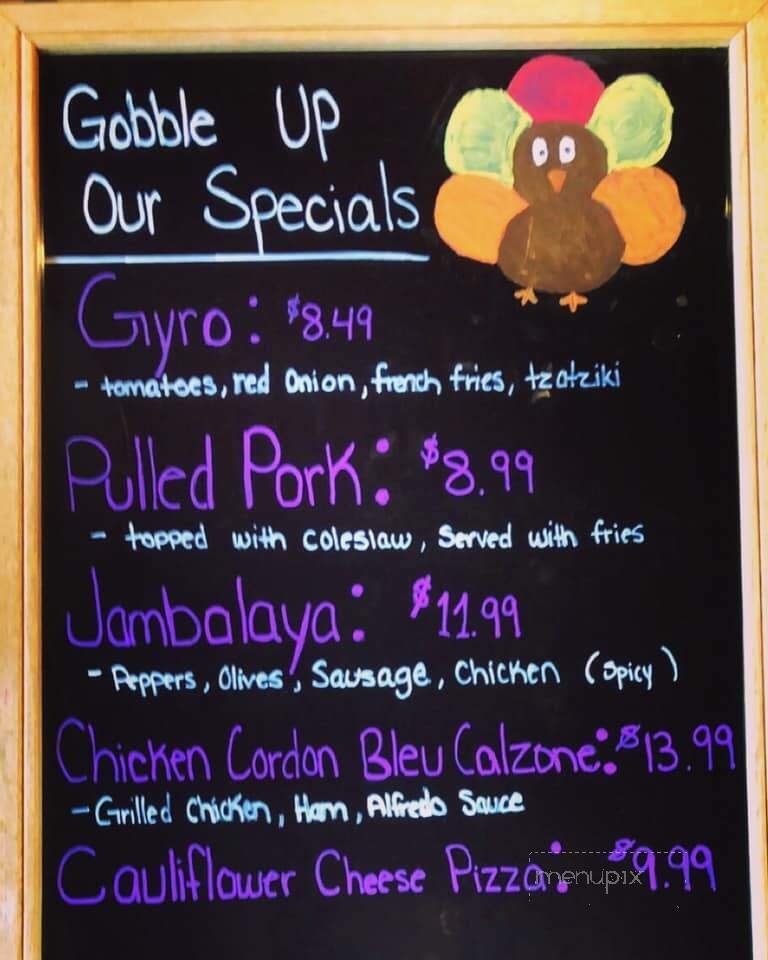 Gobble Up
Our Specials
Gyro: $8.49
- tomatoes, red Onion, french fries, tzatziki
Pulled Pork: $8.99
- topped with coleslaw, Served with fries
Jambalaya: $11.99
- Peppers, Olives, Sausage, Chicken (Spicy)
Chicken Cordon Bleu Calzone: $13.99
- Grilled Chicken, Ham, Alfredo Sauce
Cauliflower Cheese Pizza: $9.99
menupix